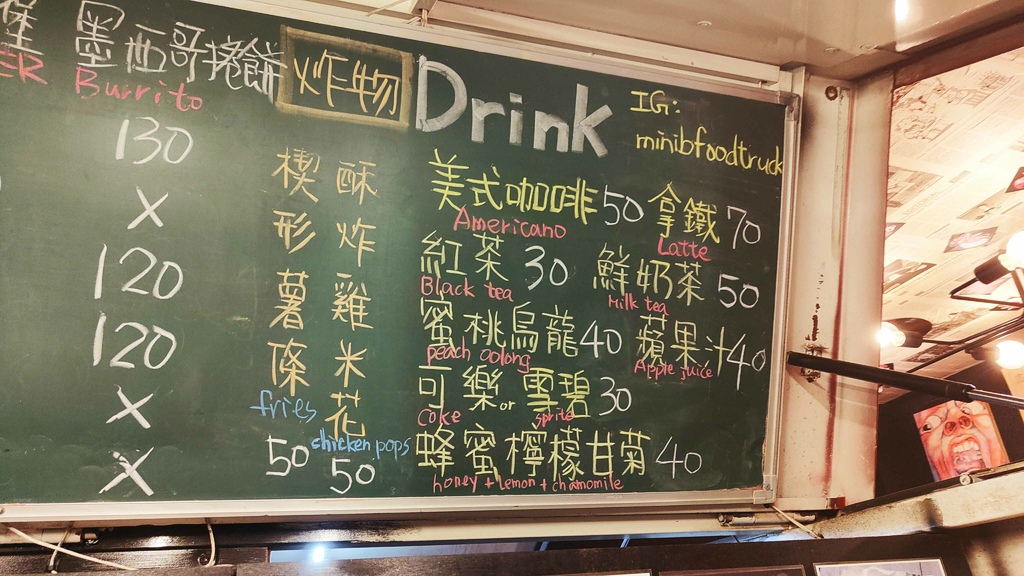 墨西哥捲餅
ER Burrito
130
X
120
120
X
X
炸物
楔形薯條
fries
50
酥炸雞米花
chicken pops
50
Drink
IG:
minibfoodtruck
美式咖啡 50
Americano
拿鐵 70
Latte
紅茶 30
Black tea
鮮奶茶 50
Milk tea
蜜桃烏龍 40
peach oolong
蘋果汁 40
Apple juice
可樂 or 雪碧 30
Coke sprite
蜂蜜檸檬甘菊 40
honey + lemon + chamomile